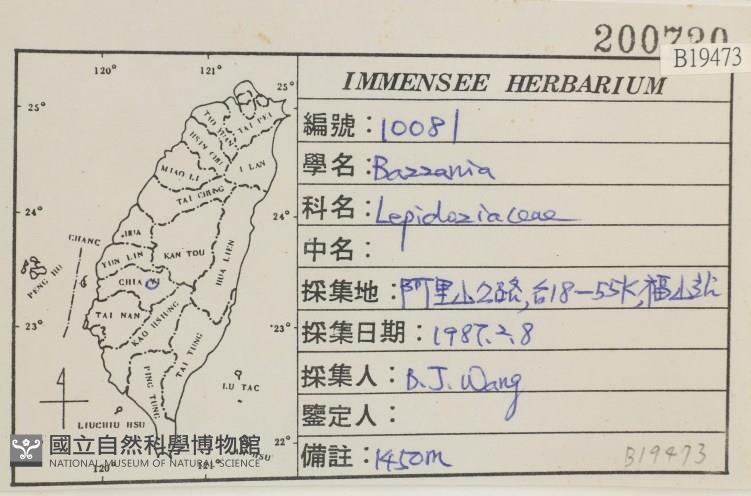 200720
B19473
IMMENSEE HERBARIUM
編號：10081
學名：Bazzania
科名：Lepidoziaceae
中名：
採集地：阿里山公路,台18-55K,福山站
採集日期：1987.2.8
採集人：B.J. Wang
鑒定人：
備註：1450m
B19473
120°
121°
25°
25°
TAO YUAN
TAI PEI
HSIN CHU
I LAN
MIAO LI
TAI CHUNG
24°
24°
CHANG
HUA
YUN LIN
KAN TOU
HUA LIEN
PENG HU
CHIA
TAI NAN
KAO HSIUNG
23°
23°
TAI TUNG
PING TUNG
LU TAC
LIUCHIU HSU
22°
HSU
120°
121°
國立自然科學博物館
NATIONAL MUSEUM OF NATURAL SCIENCE